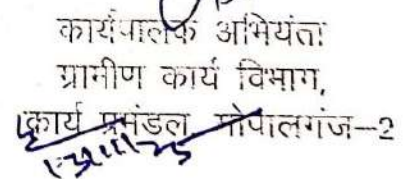 कार्यपालक अभियंता
ग्रामीण कार्य विभाग,
कार्य प्रमंडल गोपालगंज-2